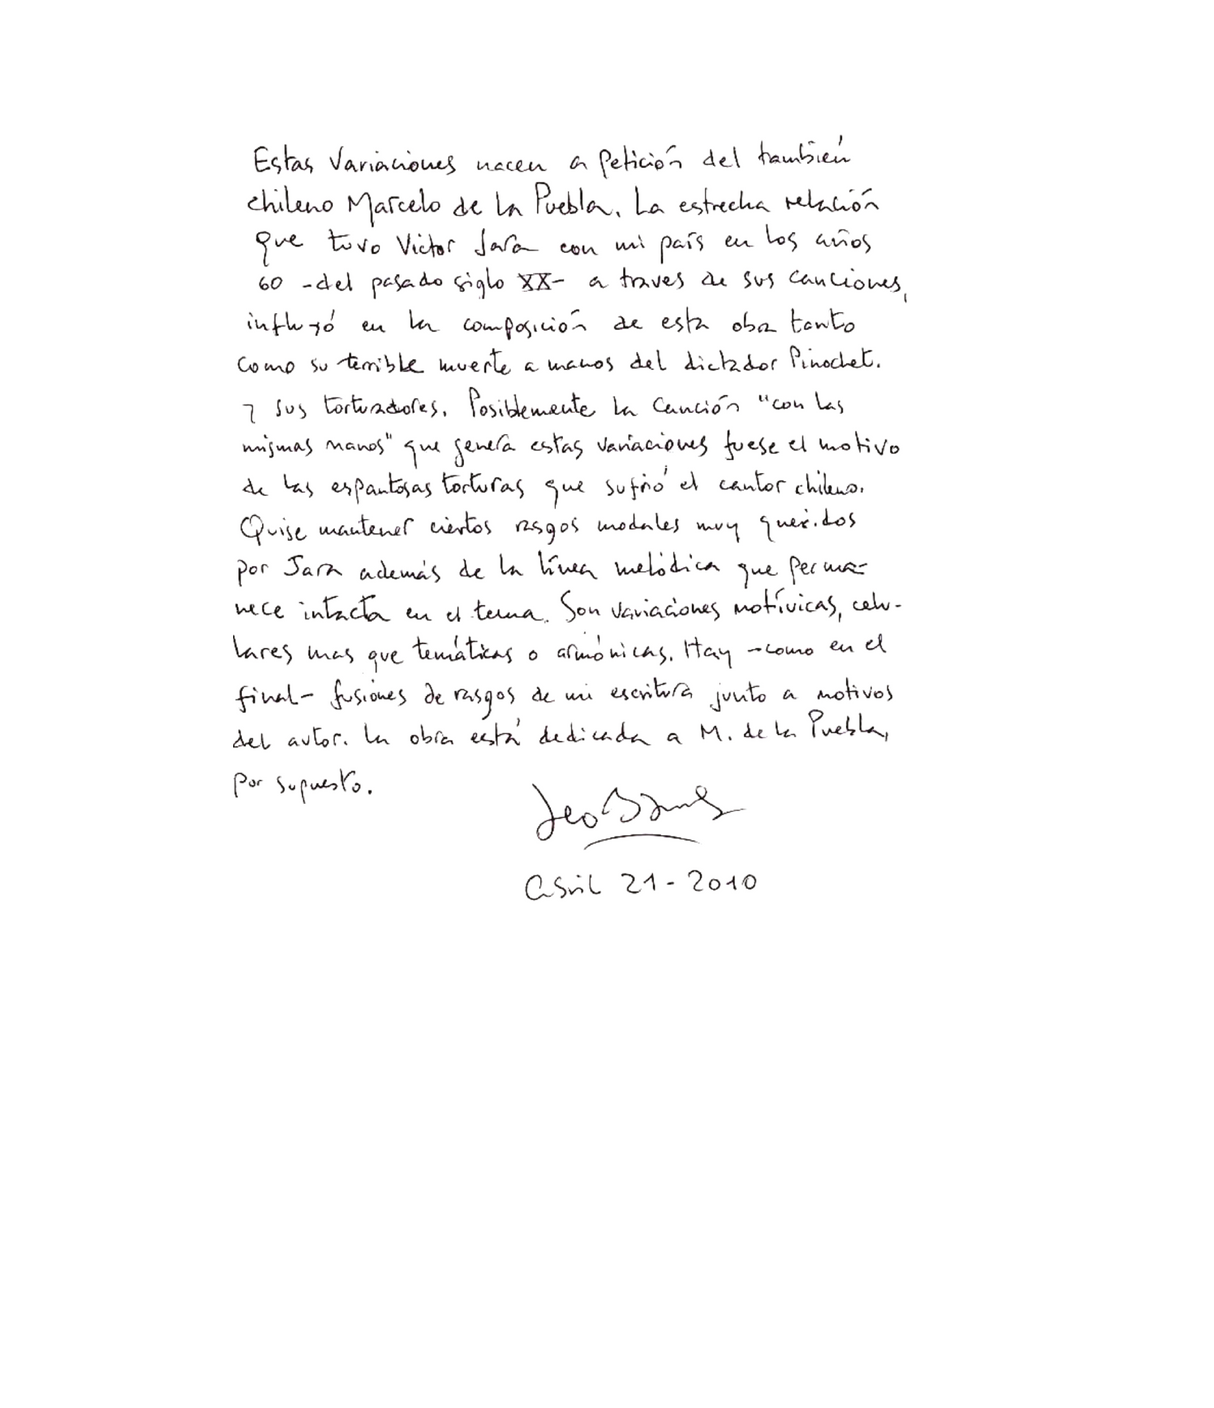 Estas Variaciones nacen a petición del también
chileno Marcelo de la Puebla. La estrecha relación
que tuvo Victor Jara con mi país en los años
60 -del pasado siglo XX- a traves de sus canciones,
influyó en la composición de esta obra tanto
como su terrible muerte a manos del dictador Pinochet.
y sus torturadores. Posiblemente la canción "con las
mismas manos" que genera estas variaciones fuese el motivo
de las espantosas torturas que sufrió el cantor chileno.
Quise mantener ciertos rasgos modales muy queridos
por Jara además de la línea melódica que perma-
nece intacta en el tema. Son variaciones motívicas, celu-
lares mas que temáticas o armónicas. Hay -como en el
final- fusiones de rasgos de mi escritura junto a motivos
del autor. La obra está dedicada a M. de la Puebla,
por supuesto.
Abril 21-2010